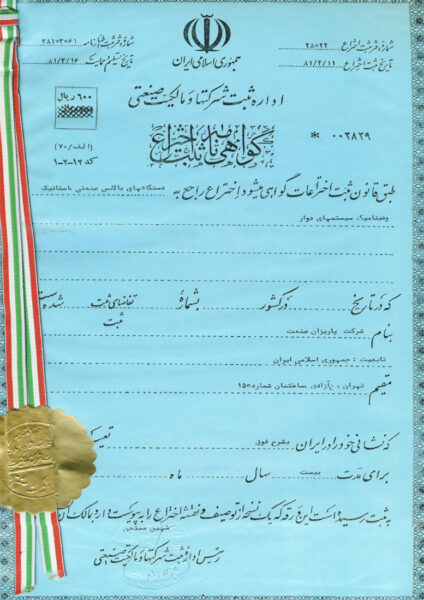 جمهوری اسلامی ایران
شماره و تاریخ ثبت اختراع ۲۸۰۲۲
تاریخ ثبت اختراع ۸۱/۲/۱۱
شماره ثبت اظهارنامه ۳۸۱۰۳۰۶۱
تاریخ تسلیم ۸۱/۳/۱۶
اداره ثبت شرکتها و مالکیت صنعتی
۶۰۰ ریال
گواهی نامه ثبت اختراع
* ۰۰۳۸۳۹
(الف/۷۰)
کد ۱۲-۲-۱
طبق قانون ثبت اختراعات گواهی میشود اختراع راجع به دستگاههای بالانس صنعتی استاتیک
ودینامیک سیستمهای دوار
که در تاریخ در کشور بشماره تقاضای ثبت شده است
ثبت
بنام شرکت پاریزان صنعت
تابعیت : جمهوری اسلامی ایران
مقیم تهران ، خ آزادی ساختمان شماره ۱۵۰
که نشانی خود را در ایران بشرح فوق
برای مدت بیست سال ماه
به ثبت رسیده است این ورقه که یک نسخه از توصیف و نقشه اختراع را به پیوست دارد بمالک آن
رئیس اداره ثبت شرکتها و مالکیت صنعتی